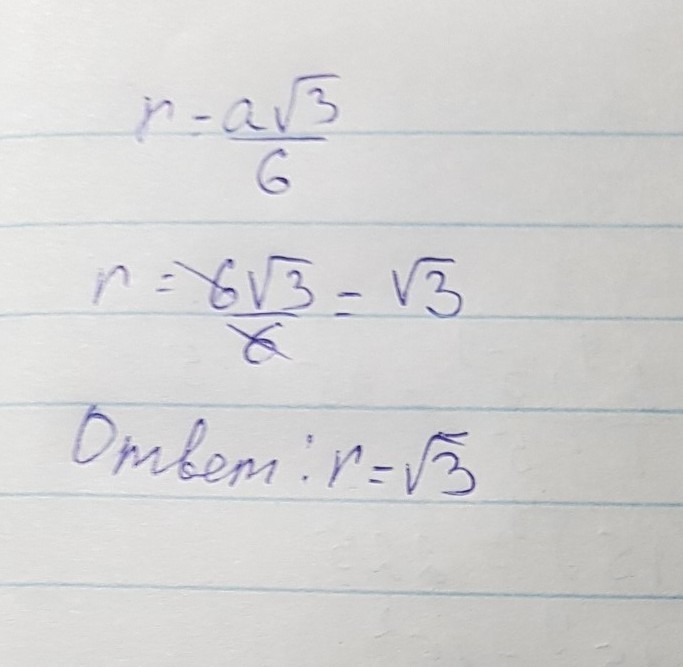 r = a√3/6
r = 6√3/6 = √3
Ответ: r = √3